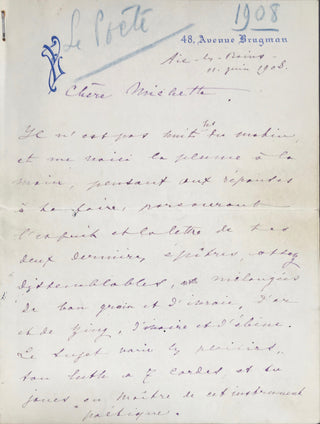 Le Poète
1908
48, Avenue Brugman
Aix-les-Bains
11 juin 1908.
Chère Michette,
Il n'est pas huit hrs du matin,
et me voici la plume à la
main, pensant aux réponses
à te faire, parcourant
l'esprit et la lettre de tes
deux dernières épîtres, assez
dissemblables, mélanges
de bon grain et d'ivraie, d'or
et de zinc, d'ivoire et d'ébène.
Le sujet varie les plaisirs,
ton luth a 7 cordes, et tu
joues en maître de cet instrument
poétique.